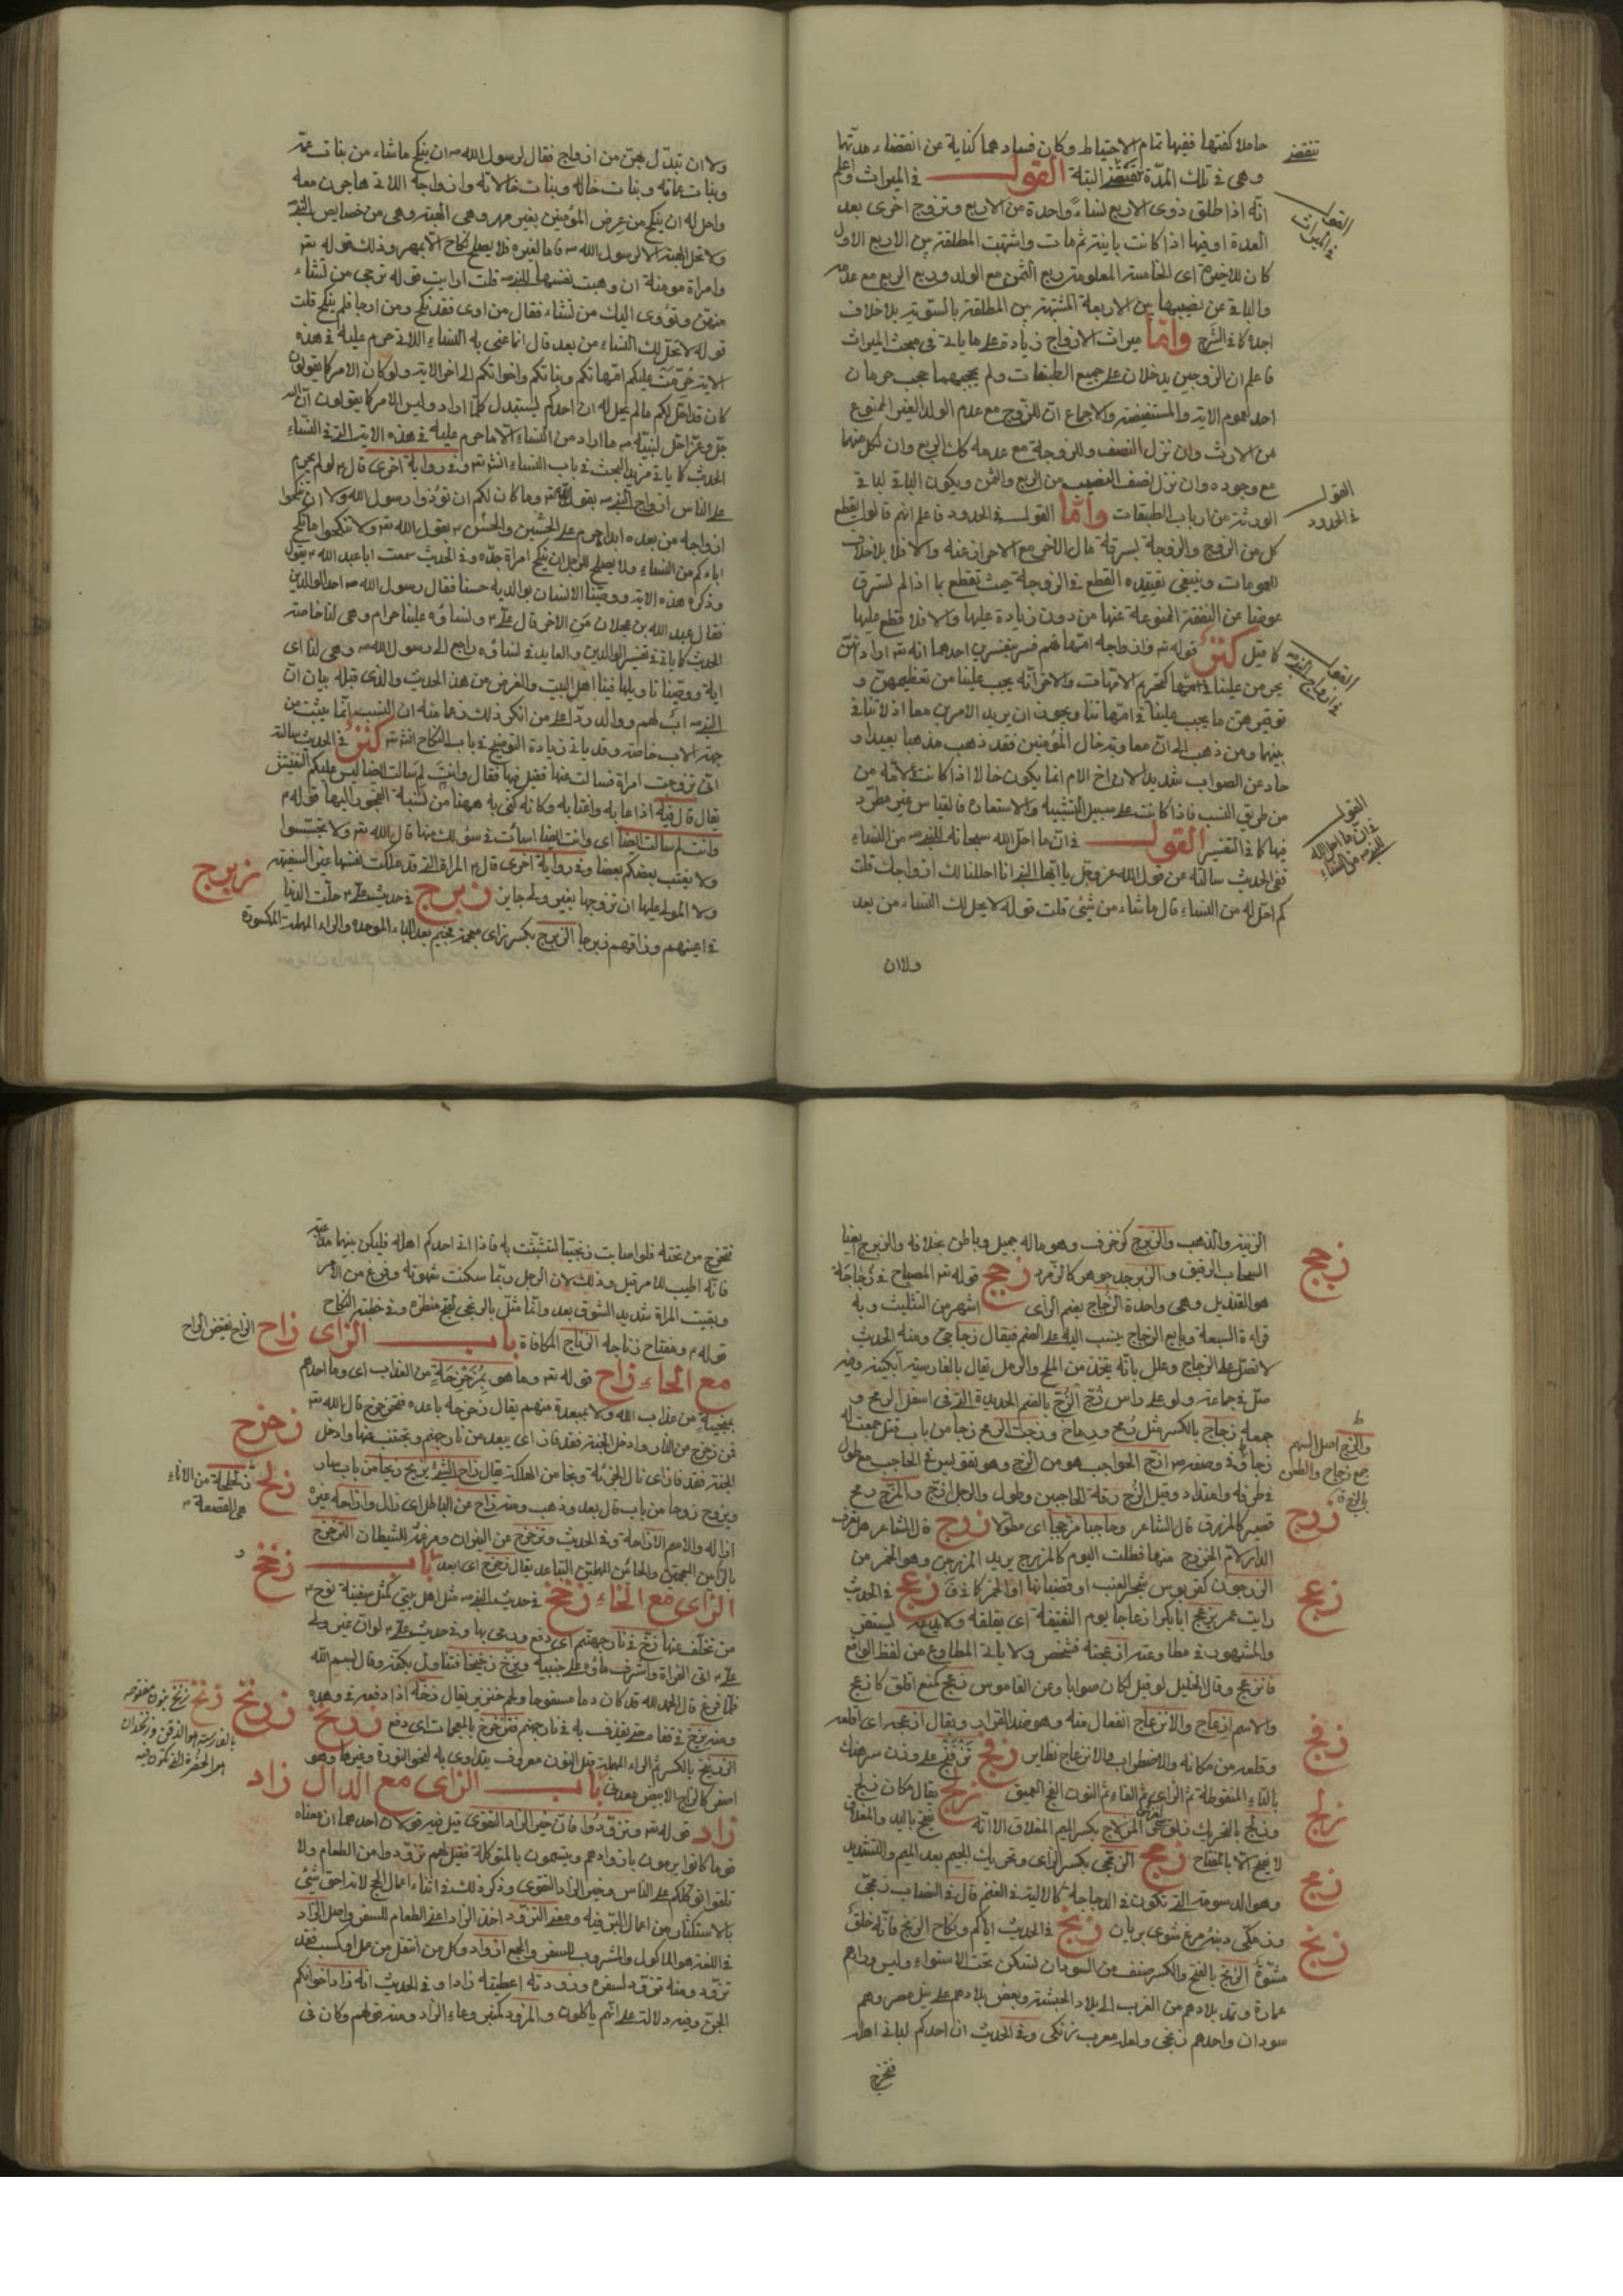 حاملا كفتها ففيها تمام الاحتياط وكان فساد هما كناية عن انقضاء مدتها
وهي في تلك المدة تنقض البتة القول في الميراث واعلم
انه اذا طلق ذوى الاربع لنساء واحدة من الاربع وتزوج اخرى بعد
العدة او فيها اذا كانت باينة ثم مات واشتبهت المطلقة من الاربع الاول
كان للاخيرة اى الخامسة المعلومة ربع الثمن مع الولد وربع الربع مع عدمه
والباقي عن نصيبها بين الاربعة المشتبهة بين المطلقة بالسوية بلا خلاف
اجده كما في الشرح واما ميراث الازواج زيادة على ما ياتي في مبحث الميراث
فاعلم ان الزوجين يدخلان على جميع الطبقات ولم يحجبهما حجب حرمان
احد لعموم الاية والمستفيضة والاجماع ان للزوج مع عدم الولد الغير الممنوع
من الارث وان نزل النصف وللزوجة مع عدمه كك الربع وان لكل منهما
مع وجوده وان نزل نصف النصيب من الربع والثمن ويكون الباقي لباقي
الورثة من ارباب الطبقات واما القول في الحدود فاعلم انهم قالوا يقطع
كل من الزوج والزوجة لسرقة مال الاخر مع الاحراز عنه والا فلا بلا خلاف
للعمومات وينبغي تقييده القطع في الزوجة حيث تقطع بما اذا لم تسرق
عوضا عن النفقة الممنوعة عنها من دون زيادة عليها والا فلا قطع عليها
كما قيل كنز قوله تع وازواجه امهاتهم فسر بتفسيرين احدهما انه تع اراد انهن
يحرمن علينا كتحريم الامهات والاخر انه يجب علينا من تعظيمهن و
توقيرهن ما يجب علينا في امهاتنا ويجوز ان يريد الامرين معا اذ لا تنافي
بينهما ومن ذهب الى ان معاوية خال المؤمنين فقد ذهب مذهبا بعيدا و
حاد عن الصواب شديدا لان اخ الام انما يكون خالا اذا كانت الامة من
من طريق النسب فاذا كانت على سبيل التشبيه والاستعارة فالقياس غير مطرد
فيها كما في التفسير القول في ان ما احل الله سبحانه للنبي ص من النساء
ففي الحديث سالته عن قول الله عز وجل يا ايها النبي انا احللنا لك ازواجك قلت
كم احل له من النساء قال ما شاء من شئ قلت قوله لا يحل لك النساء من بعد
ولا ان
تنقض
القول في الميراث
القول في الحدود
القول في ازواج النبي ص
القول في ان ما احل الله للنبي ص من النساء
ولا ان تبدل بهن من ازواج فقال لرسول الله ص ان ينكح ما شاء من بنات عمه
وبنات عماته وبنات خاله وبنات خالاته وازواجه اللاتي هاجرن معه
واحل له ان ينكح من عرض المؤمنين بغير مهر وهي الهبة وهي من خصايص النبي
ولا تحل الهبة الا لرسول الله ص فاما لغيره فلا يصلح نكاح الا بمهر وذلك قوله تع
وامراة مومنة ان وهبت نفسها للنبي ص قلت ارايت قوله ترجى من تشاء
منهن وتؤوى اليك من تشاء فقال من اوى فقد نكح ومن ارجا فلم ينكح قلت
قوله لا تحل لك النساء من بعد قال انما عنى به النساء اللاتي حرم عليه في هذه
الاية حرمت عليكم امهاتكم وبناتكم واخواتكم الى اخر الاية ولو كان الامر كما يقولون
كان قد احل لكم ما لم يحل له ان احدكم ليستبدل كلما اراد وليس الامر كما يقولون ان الله
جل وعز احل لنبيه ص ما اراد من النساء الا ما حرم عليه في هذه الاية التي في النساء
الحديث كما ياتي مزيد البحث في باب النساء انش تع وفي رواية اخرى قال لو لم يحرم
على الناس ازواج النبي ص بقول الله تع وما كان لكم ان تؤذوا رسول الله ولا ان تنكحوا
ازواجه من بعده ابدا حرم على الحسن والحسين ع بقول الله تع ولا تنكحوا ما نكح
اباءكم من النساء ولا يصلح للرجل ان ينكح امراة جده وفي الحديث سمعت ابا عبد الله ع يقول
وذكر هذه الاية ووصينا الانسان بوالديه حسنا فقال رسول الله ص احد الوالدين
فقال عبد الله بن عجلان من الاخر قال على ع ونساؤه علينا حرام وهي لنا خاصة
الحديث كما ياتي في تفسير الوالدين والعايد في نساؤه راجع الى رسول الله ص وهي لنا اى
اية ووصينا تاويلها فينا اهل البيت والغرض من هذ الحديث والذى قبله بيان ان
النبي ص اب لهم ووالد ردا على من انكر ذلك زعما منه ان النسب انما يثبت من
جهة الاب خاصة وقد ياتي زيادة التوضيح في باب النكاح انش تع كنز في الحديث سالته
انى تزوجت امراة فسالت عنها فقيل فيها فقال وانت لم سالت ايضا ليس عليكم التفتيش
يقال قال فيه اذا عابه واغتابه وكانه كنى به ههنا من نسبة الفجور اليها قوله ع
وانت لم سالت ايضا اى وانت ايضا اسات في سؤالك عنها قال الله تع ولا تجسسوا
ولا يغتب بعضكم بعضا وفي رواية اخرى قال ع المراة التي قد ملكت نفسها غير السفيهة
ولا المولى عليها ان تزوجها بغير ولى جايز زبرج في حديث على ع حلت الدنيا
في اعينهم وراقهم زبرجها الزبرج بكسر زاى معجمة فجيم بعد الباء الموحدة والراء المهملة المكسورة
زبرج
الزينة والذهب والزبرج كزخرف وهو ما له جميل وباطن بخلافه والزبرج ايضا
السحاب الرقيق والزبرجد جوهر كالزمرد زجج قوله تع المصباح في زجاجة
هو القنديل وهي واحدة الزجاج بضم الزاى اشهر من التثليث وبه
قراءة السبعة وبايع الزجاج ينسب اليه على الضم فيقال زجاجى ومنه الحديث
لا تصل على الزجاج وعلل بانه يتخذ من الملح والرمل يقال بالفارسية آبگينه وفيه
صل في جماعة ولو على راس زج الزج بالضم الحديدة التي في اسفل الرمح و
جمعه زجاج بالكسر مثل رمح ورماح وزججت الرمح زجا من باب قتل جعلت له
زجا وفي وصفه ص ازج الحواجب هو من الزج وهو تقويس في الحاجب مع طول
في طرفه وامتداد وقيل الزج دقة الحاجبين وطول والرجل ازج والمزج رمح
قصير كالمزرق قال الشاعر وحاجبا مزججا اى مطولا زرج قال الشاعر هل تعرف
الدار لام الخزرج منها فظلت اليوم كالمزرج يريد المزرجن وهو الخمر من
الزرجون كقربوس شجر العنب او قضبانها او الخمر كما في ق زعج في الحديث
رايت عمر يزعج ابا بكر ازعاجا يوم الثقيفة اى يقلقه ولا يدعه يستقر
والمشهور في مطاوعته ازعجته فشخص ولا ياتي المطاوع من لفظ الواقع
فانزعج وقال الخليل لو قيل لكان صوابا وعن القاموس زعج كمنع اقلق كازعج
والاسم ازعاج والانزعاج انفعال منه وهو ضد القرار ويقال ازعجه اى اقلعه
وقلعه من مكانه والاضطراب والانزعاج نظاير زفج
بالتاء المنقوطة ثم الزاى ثم الفاء ثم النون الفج العميق زلج يقال مكان زلج
وزلج بالتحريك زلق المزلاج بكسر الميم المغلاق الا انه يفتح باليد والمغلاق
لا يفتح الا بالمفتاح زمج الزمجى بكسر الزاى وتحريك الجيم بعد الميم والتشديد
وهو الدسومة التي تكون في الدجاجة كالالية في الغنم قال في النصاب زمجى
وزمكى دنبه مرغ شوى بريان زنج في الحديث اياكم ونكاح الزنج فانه خلق
مشوه الزنج بالفتح والكسر صنف من السودان لتسكن تحت الاستواء وليس وراءهم
عمارة وتمتد بلادهم من الغرب الى بلاد الحبشة وبعض بلادهم على نيل مصر وهم
سودان واحدهم زنجى ولعله معرب زنگى وفي الحديث ان احدكم لياتي اهله
فتخرج
زجج
والزج اصل السهم
جمع زجاج والطعن
بالزج ق
زرج
زعج
زفج
زلج
زمج
زنج
فتخرج من تحته فلو اصابت زنجيا لتشبثت به فاذا اتى احدكم اهله فليكن بينهما مداعبة
فانه اطيب للامر قيل وذلك لان الرجل ربما سكنت شهوته وفرغ من الامر
وبقيت المراة شديد الشوق بعد وانما مثل بالزنجى لقبح منظره وفي خطبة النكاح
قوله ع ومفتاح زناجه الزناج المكافاة باب الزاى
مع الحاء زاح قوله تع وما هو بمزحزحه من العذاب اى وما احدهم
بمنجيه من عذاب الله ولا بمبعدة منهم يقال زحزحه باعده فتزحزح قال الله تع
فمن زحزح عن النار وادخل الجنة فقد فاز اى يبعد من نار جهنم ويجتنب عنها وادخل
الجنة فقد فاز اى نال الخيرية ونجا من الهلكة يقال زاح الشئ يزيح زيحا من باب سار
ويزوح زوحا من باب قال بعد وذهب ومنه زاح عن الباطل اى زال وازاحه غيره
ازاله والاسم الازاحة وفي الحديث وتزحزح عن النيران ومرغمة للشيطان التزحزح
بالزائين المعجمتين والحائين المهملتين التباعد يقال زحزح اى ابعد باب
الزاى مع الخاء زخخ في حديث النبي ص مثل اهل بيتي كمثل سفينة نوح ع
من تخلف عنها زخ في نار جهنم اى دفع ورمى بها وفي حديث على ع لو ان غير ولى
على ع اتى الفراة واشرف ماؤه على جنبيه ويزخ زخيخا فتناول بكفه وقال بسم الله
فلما فرغ قال الحمد لله قد كان دما مسفوحا ولحم خنزير يقال زخه اذا دفعه في وهدة
ومنه يزخ في قفاه حتى يقذف به في نار جهنم فتزخزخ بالمعجمات اى دفع زرنخ
الزرنيخ بالكسر ثم الراء المهملة قبل النون معروف يتداوى به لنحو النورة وغيرها وهو
اصفر كالزاج الابيض معدنى باب الزاى مع الدال زاد
زاد قوله تع وتزودوا فان خير الزاد التقوى قيل فيه قولان احدهما ان معناه
قوما كانوا يرمون بازوادهم ويتسمون بالمتوكلة فقيل لهم تزودوا من الطعام ولا
تلقوا كلكم على الناس وخير الزاد التقوى وذكر ذلك في اثناء اعمال الحج لانه احق شئ
بالاستكثار من اعمال البر فيه ومعنى التزود اخذ الزاد اعنى الطعام للسفر واصل الزاد
في اللغة هو الماكول والمشروب للسفر والجمع ازواد وكل من انتقل من عمل او كسب فقد
تزود ومنه تزود لسفره وزودته اعطيته زادا وفي الحديث انه زاد اخوانكم
الجن وفيه دلالة على انهم ياكلون والمزود كمنبر وعاء الزاد ومنه قولهم وكان في
زاح الزاح نقيض الراح
زحزح
زلح زلحلحة من الاناء
هي القصعة
زخخ
زرنخ زنخ زنخ بنون مفتوحة
بالفارسية هو الذقن وزنخدان
اسم الحفرة التي تكون فيه